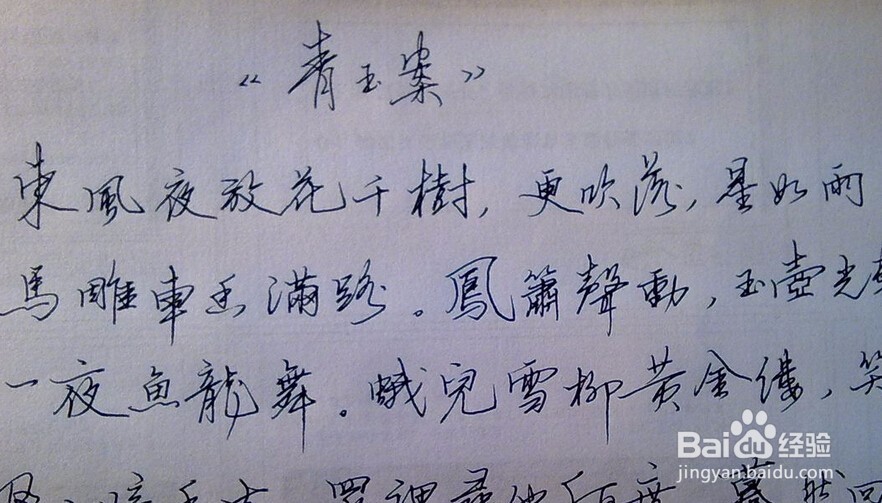 《青玉案》
東風夜放花千樹，更吹落，星如雨
馬雕車香滿路。鳳簫聲動，玉壺光
一夜魚龍舞。蛾兒雪柳黄金縷，笑
Baidu经验
jingyan.baidu.com